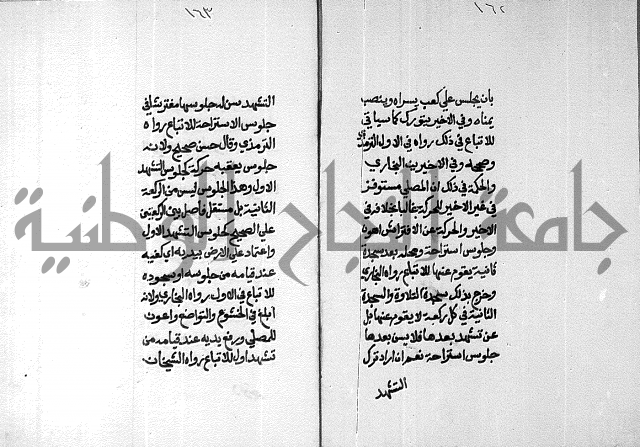 ١٦٢
بان يجلس علي كعب يسراه وينصب
يمناه وفي الاخير يتورك كما سياتي
للاتباع في ذلك رواه في الاول الترمذي
وصححه وفي الاخيرين البخاري
والحكمة في ذلك ان المصلي مستوفز
في غير الاخير للحركة غالبا بخلافه في
الاخير والحركة عن الافتراش اهون
وجلوس استراحة ومحله بعد سجدة
ثانية يقوم عنها للاتباع رواه البخاري
وخرج بذلك سجدة التلاوة والسجدة
الثانية في كل ركعة لا يقوم عنها بل
عن تشهد بعدها فلا يسن بعدها
جلوس استراحة نعم ان اراد ترك
التشهد
١٦٣
التشهد سن له جلوسها مفترشا في
جلوس الاستراحة للاتباع رواه
الترمذي وقال حسن صحيح ولانه
جلوس يعقبه حركة كجلوس التشهد
الاول وهذا الجلوس ليس من الركعة
الثانية بل مستقل فاصل بين الركعتين
علي الصحيح كجلوس التشهد الاول
واعتماد علي الارض بيديه اي كفيه
عند قيامه من جلوسه او سجوده
للاتباع في الاول رواه البخاري ولانه
ابلغ في الخشوع والتواضع واعون
للمصلي ورفع يديه عند قيامه من
تشهد اول للاتباع رواه الشيخان
جامعة النجاح الوطنية